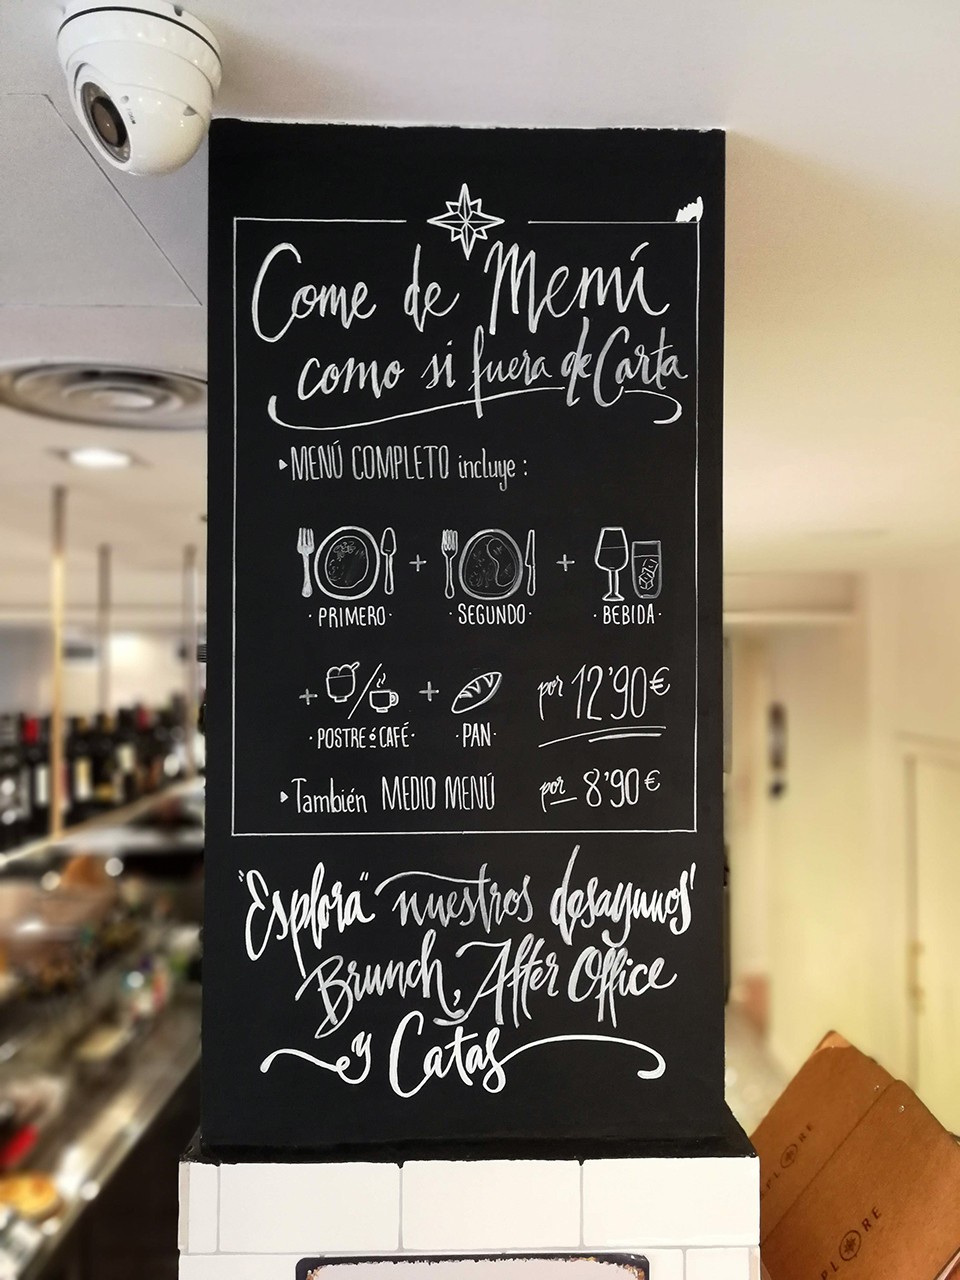 Come de Menú
como si fuera de Carta
MENÚ COMPLETO incluye :
+ +
· PRIMERO · · SEGUNDO · · BEBIDA ·
+ / + por 12'90€
· POSTRE ó CAFÉ · · PAN ·
También MEDIO MENÚ por 8'90€
"Esplora" nuestros desayunos
Brunch, After Office
y Catas
PLORE
PLORE